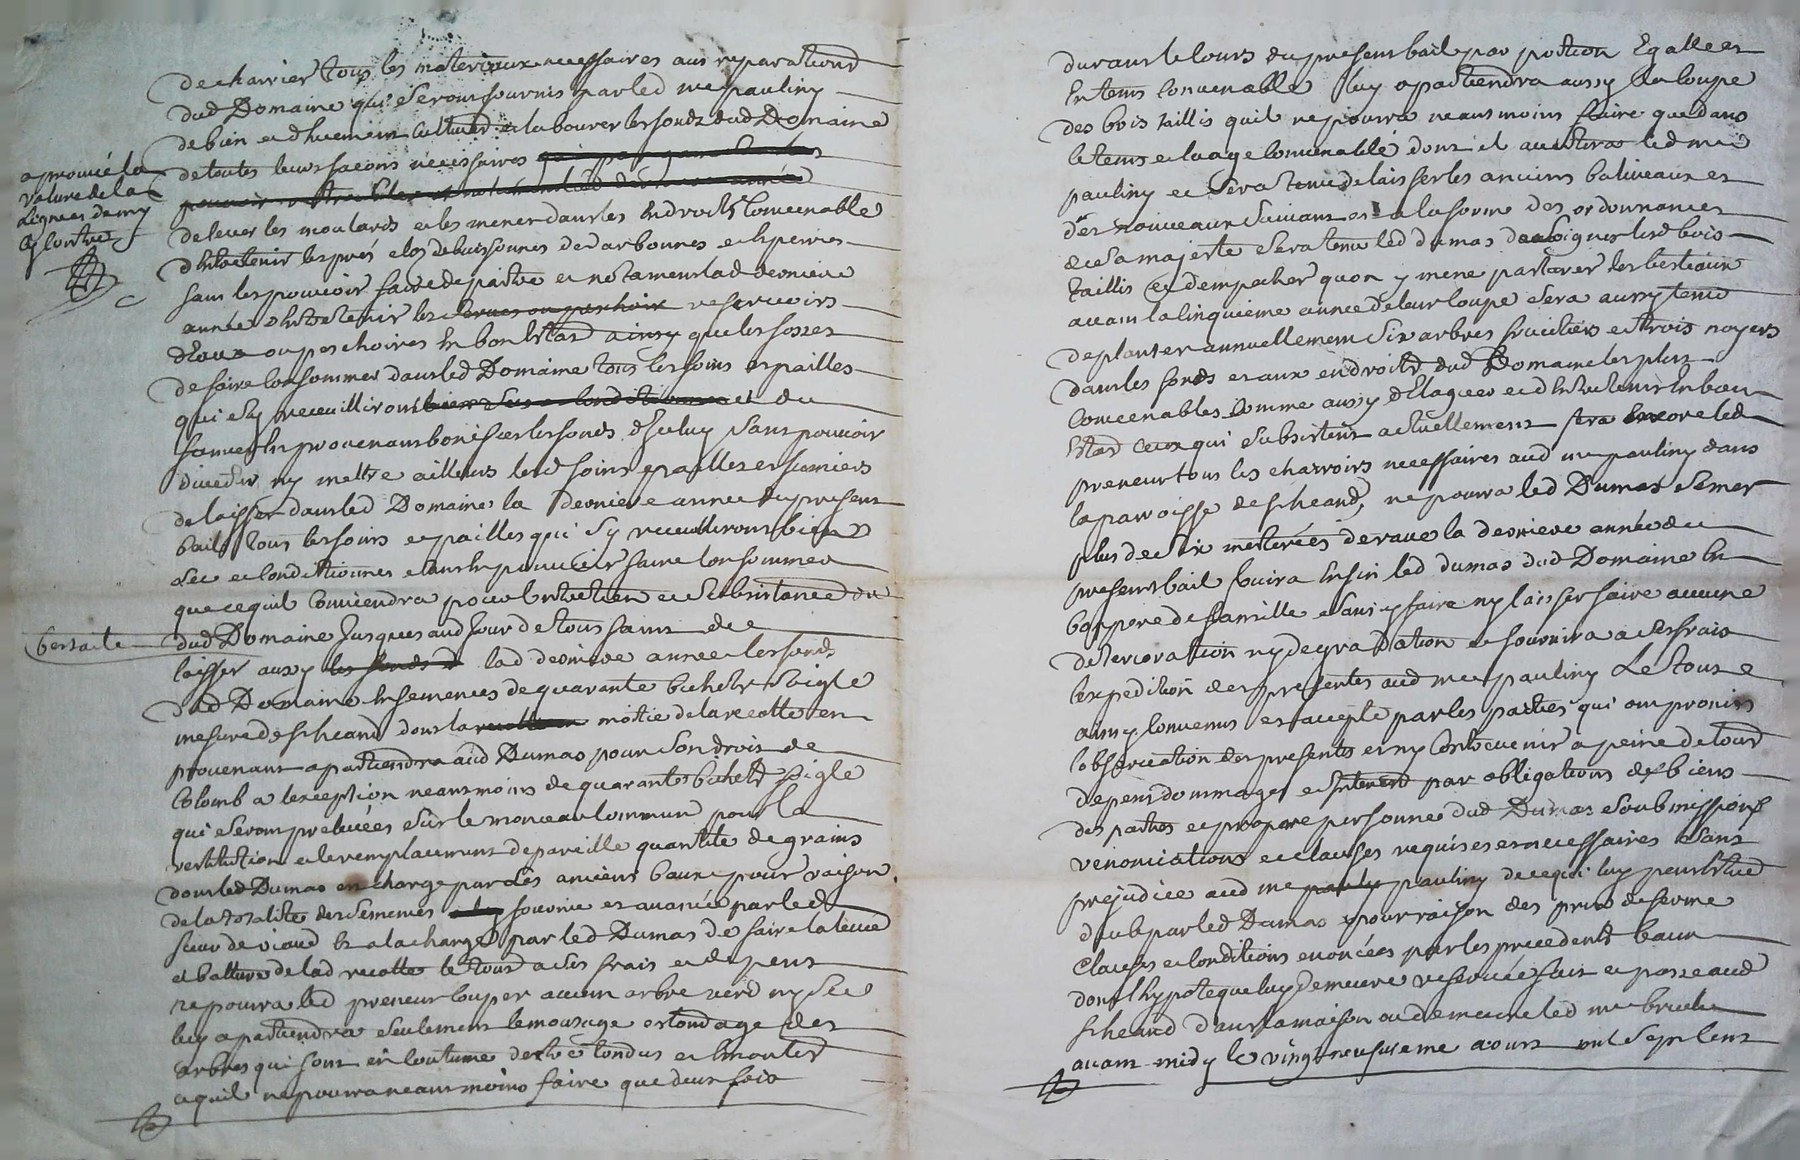 de charrier tous les materiaux necessaires aux reparations
dud Domaine qui seront fournis par led me pauliny
de bien et duement cultiver et labourer les fonds dud Domaine
de toutes leurs façons necessaires
aprouvé la
rature de la
lignees demy
et contre
de lever les moulards et les mener dans les endroits convenable
d'entretenir les prés clos de buissonnes de darbonnes et épines
sans les pouvoir faire depaitre et notament lad derniere
année d'entretenir les reservoirs
d'eaux ou peschoires en bon état ainsy que les fosses
de faire consommer dans led Domaine tous les foins et pailles
qui s'y receuilliront et du
fumier en provenant bonifier les fonds d'iceluy sans pouvoir
divertir ny mettre ailleurs lesd foins pailles et fumiers
de laisser dans led Domaine la derniere année du present
bail tous les foins et pailles qui s'y receulliront bien
sec et conditionnes sans en pouvoir faire consommer
que ce quil conviendra pour lentretien et subsistance du
bestaile
dud Domaine jusques aud jour de toussaint de
laisser aussy lad derniere année les fonds
dud Domaine ensemences de quarante bichets seigle
mesure de st heand dont la moitié de la recolte en
provenant apartiendra aud Dumas pour son droit de
colomb a lexception neantmoins de quarantes bichets seigle
qui seront prelevées sur le monceau commun pour la
restitution et le remplacement de pareille quantité de grains
dont led Dumas en charge par les anciens baux pour raison
de la totalité des semences fournie et avancée par led
sieur de viaud et a la charge par led Dumas de faire la levée
et batture de lad recolte le tout a ses frais et depens
ne poura led preneur couper aucun arbre verd ny sec
luy apartiendra seulement lemousage et tondage des
arbres qui sont en coutume destre tondus et emontés
a quil ne poura neantmoins faire que deux fois
durant le cours du present bail par portion egalle et
en tems convenable luy apartiendra aussy la coupe
des bois taillis quil ne poura neantmoins faire que dans
le tems et lage convenable dont il avertira led me
pauliny et sera tenu de laisser les anciens baliveaux et
des nouveaux suivant et a la forme des ordonnances
de sa majesté sera tenu led dumas de soigner lesd bois
taillis et d'empecher quon y mene paturer les bestiaux
avant la cinquieme année de leur coupe sera aussy tenu
de planter annuellement six arbres fruitiers et trois noyers
dans les fonds et aux endroits dud Domaine les plus
convenables comme aussy d'elaguer et d'entretenir en bon
état ceux qui subsistent actuellement fera encore led
preneur tous les charrois necessaires aud me pauliny dans
la paroisse de st heand, ne poura led Dumas semer
plus de six mesterées de rave la derniere année du
present bail jouira enfin led dumas dud Domaine en
bon pere de famille sans y faire ny laisser faire aucune
deterioration ny degradation et fournira a ses frais
lexpedition des presentes aud me pauliny Le tout
ainsy convenus et accepté par les parties qui ont promis
lobservation des presentes et ny contrevenir a peine de tous
depens dommages et interest par obligations de biens
des parties et propre personne dud Dumas soubmissions
renonciations et clauses requises et necessaires sans
prejudice aud me pauliny de ce qui luy peut etre
deub par led Dumas pour raison des prix de ferme
clauses et conditions enoncées par les precedents baux
dont l'hypoteque luy demeure reservée fait et passé aud
st heand dans la maison ou demeure led me
avant midy le vingt neufvieme aoust mil sept cent